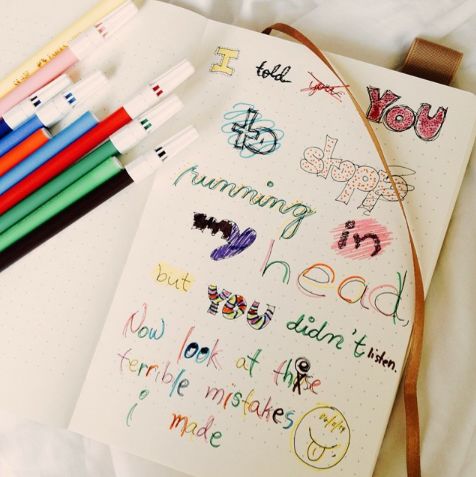 I told you YOU
to stop
running in
my head
but YOU didn't listen.
Now look at these
terrible mistakes
i made